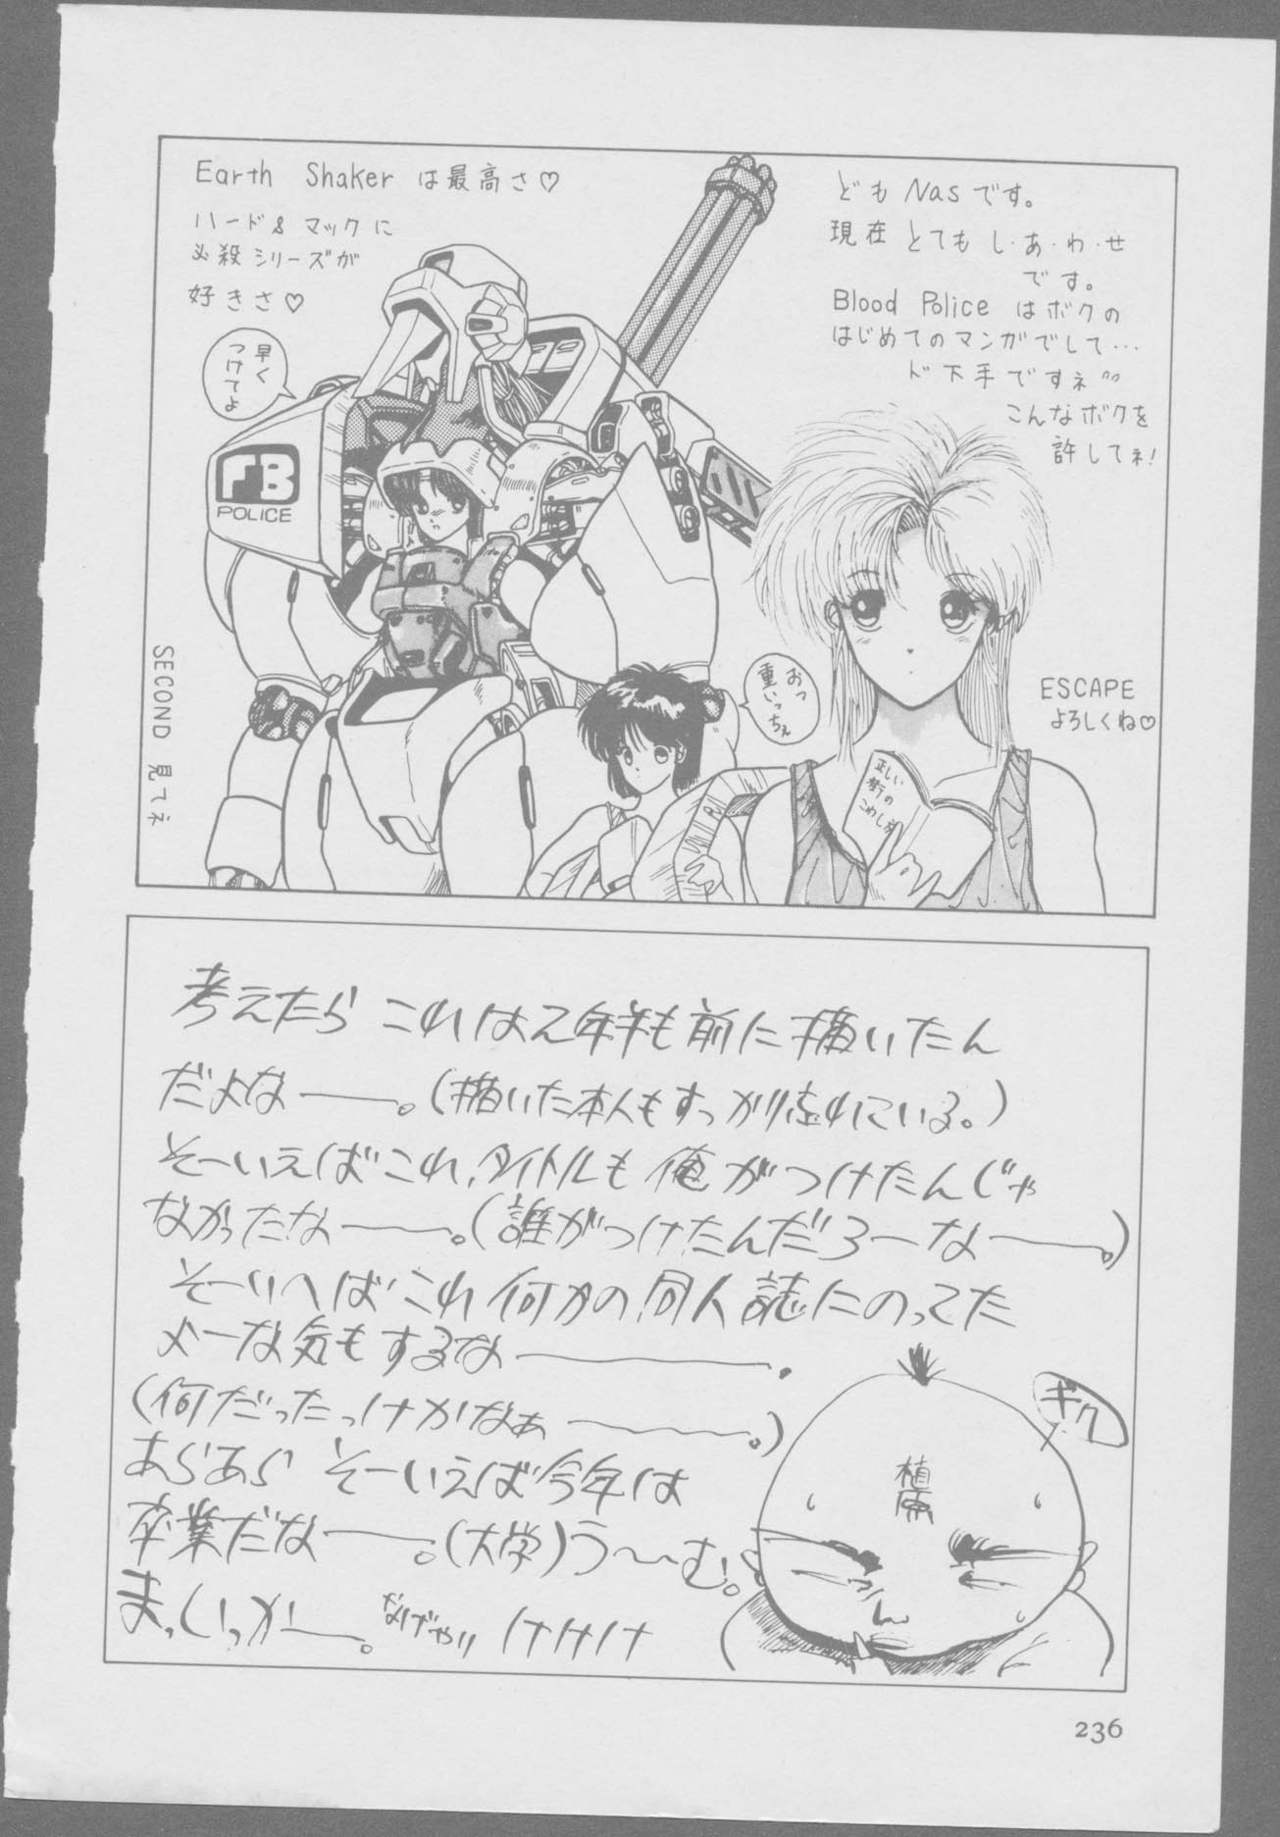 Earth Shaker は最高さ♡
ハード&マックに
必殺シリーズが
好きさ♡
早く
つけてよ
FB
POLICE
SECOND 見てネ
どもNasです。
現在とてもし・あ・わ・せ
です。
Blood Policeはボクの
はじめてのマンガでして…
ド下手ですネ
こんなボクを
許してネ!
おっ
重いっちぇ
ESCAPE
よろしくね♡
正しい
街の
こわし方
考えたらこれは2年半も前に描いたん
だよなーー。(描いた本人もすっかり忘れている。)
そーいえばこれ、タイトルも俺がつけたんじゃ
なかったなーー。(誰がつけたんだろーなーー。)
そーいへばこれ何かの同人誌にのってた
よーな気もするなーー。
(何だったっけかなぁーー。)
あらあら そーいえば今年は
卒業だなーー。(大学)う〜む。
まっ、いっかー。なげやり けけけけ
ギク
236